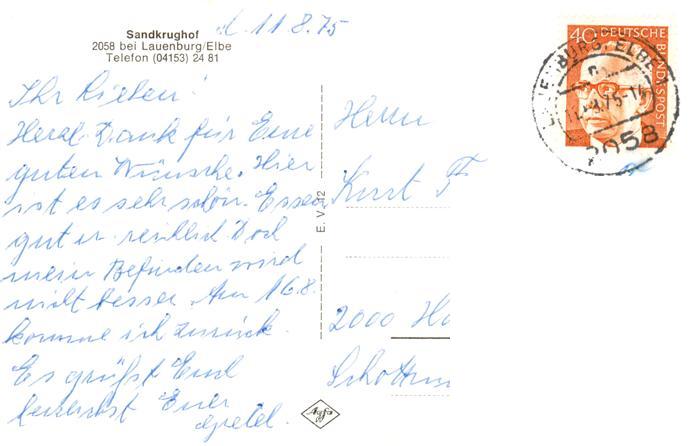 Sandkrughof
2058 bei Lauenburg/Elbe
Telefon (04153) 24 81
d. 11.8.75
Ihr Lieben!
Herzl. Dank für Eure
guten Wünsche. Hier
ist es sehr schön. Essen
gut u. reichlich Doch
mein Befinden wird
nicht besser. Am 16.8.
komme ich zurück.
Es grüßt Euch
herzlichst Eure
Gretel.
E. V. 12
Agfa
40 DEUTSCHE BUNDESPOST
LAUENBURG, ELBE
11.-8.75-14
2058
Herrn
Kurt F
2000 Ha